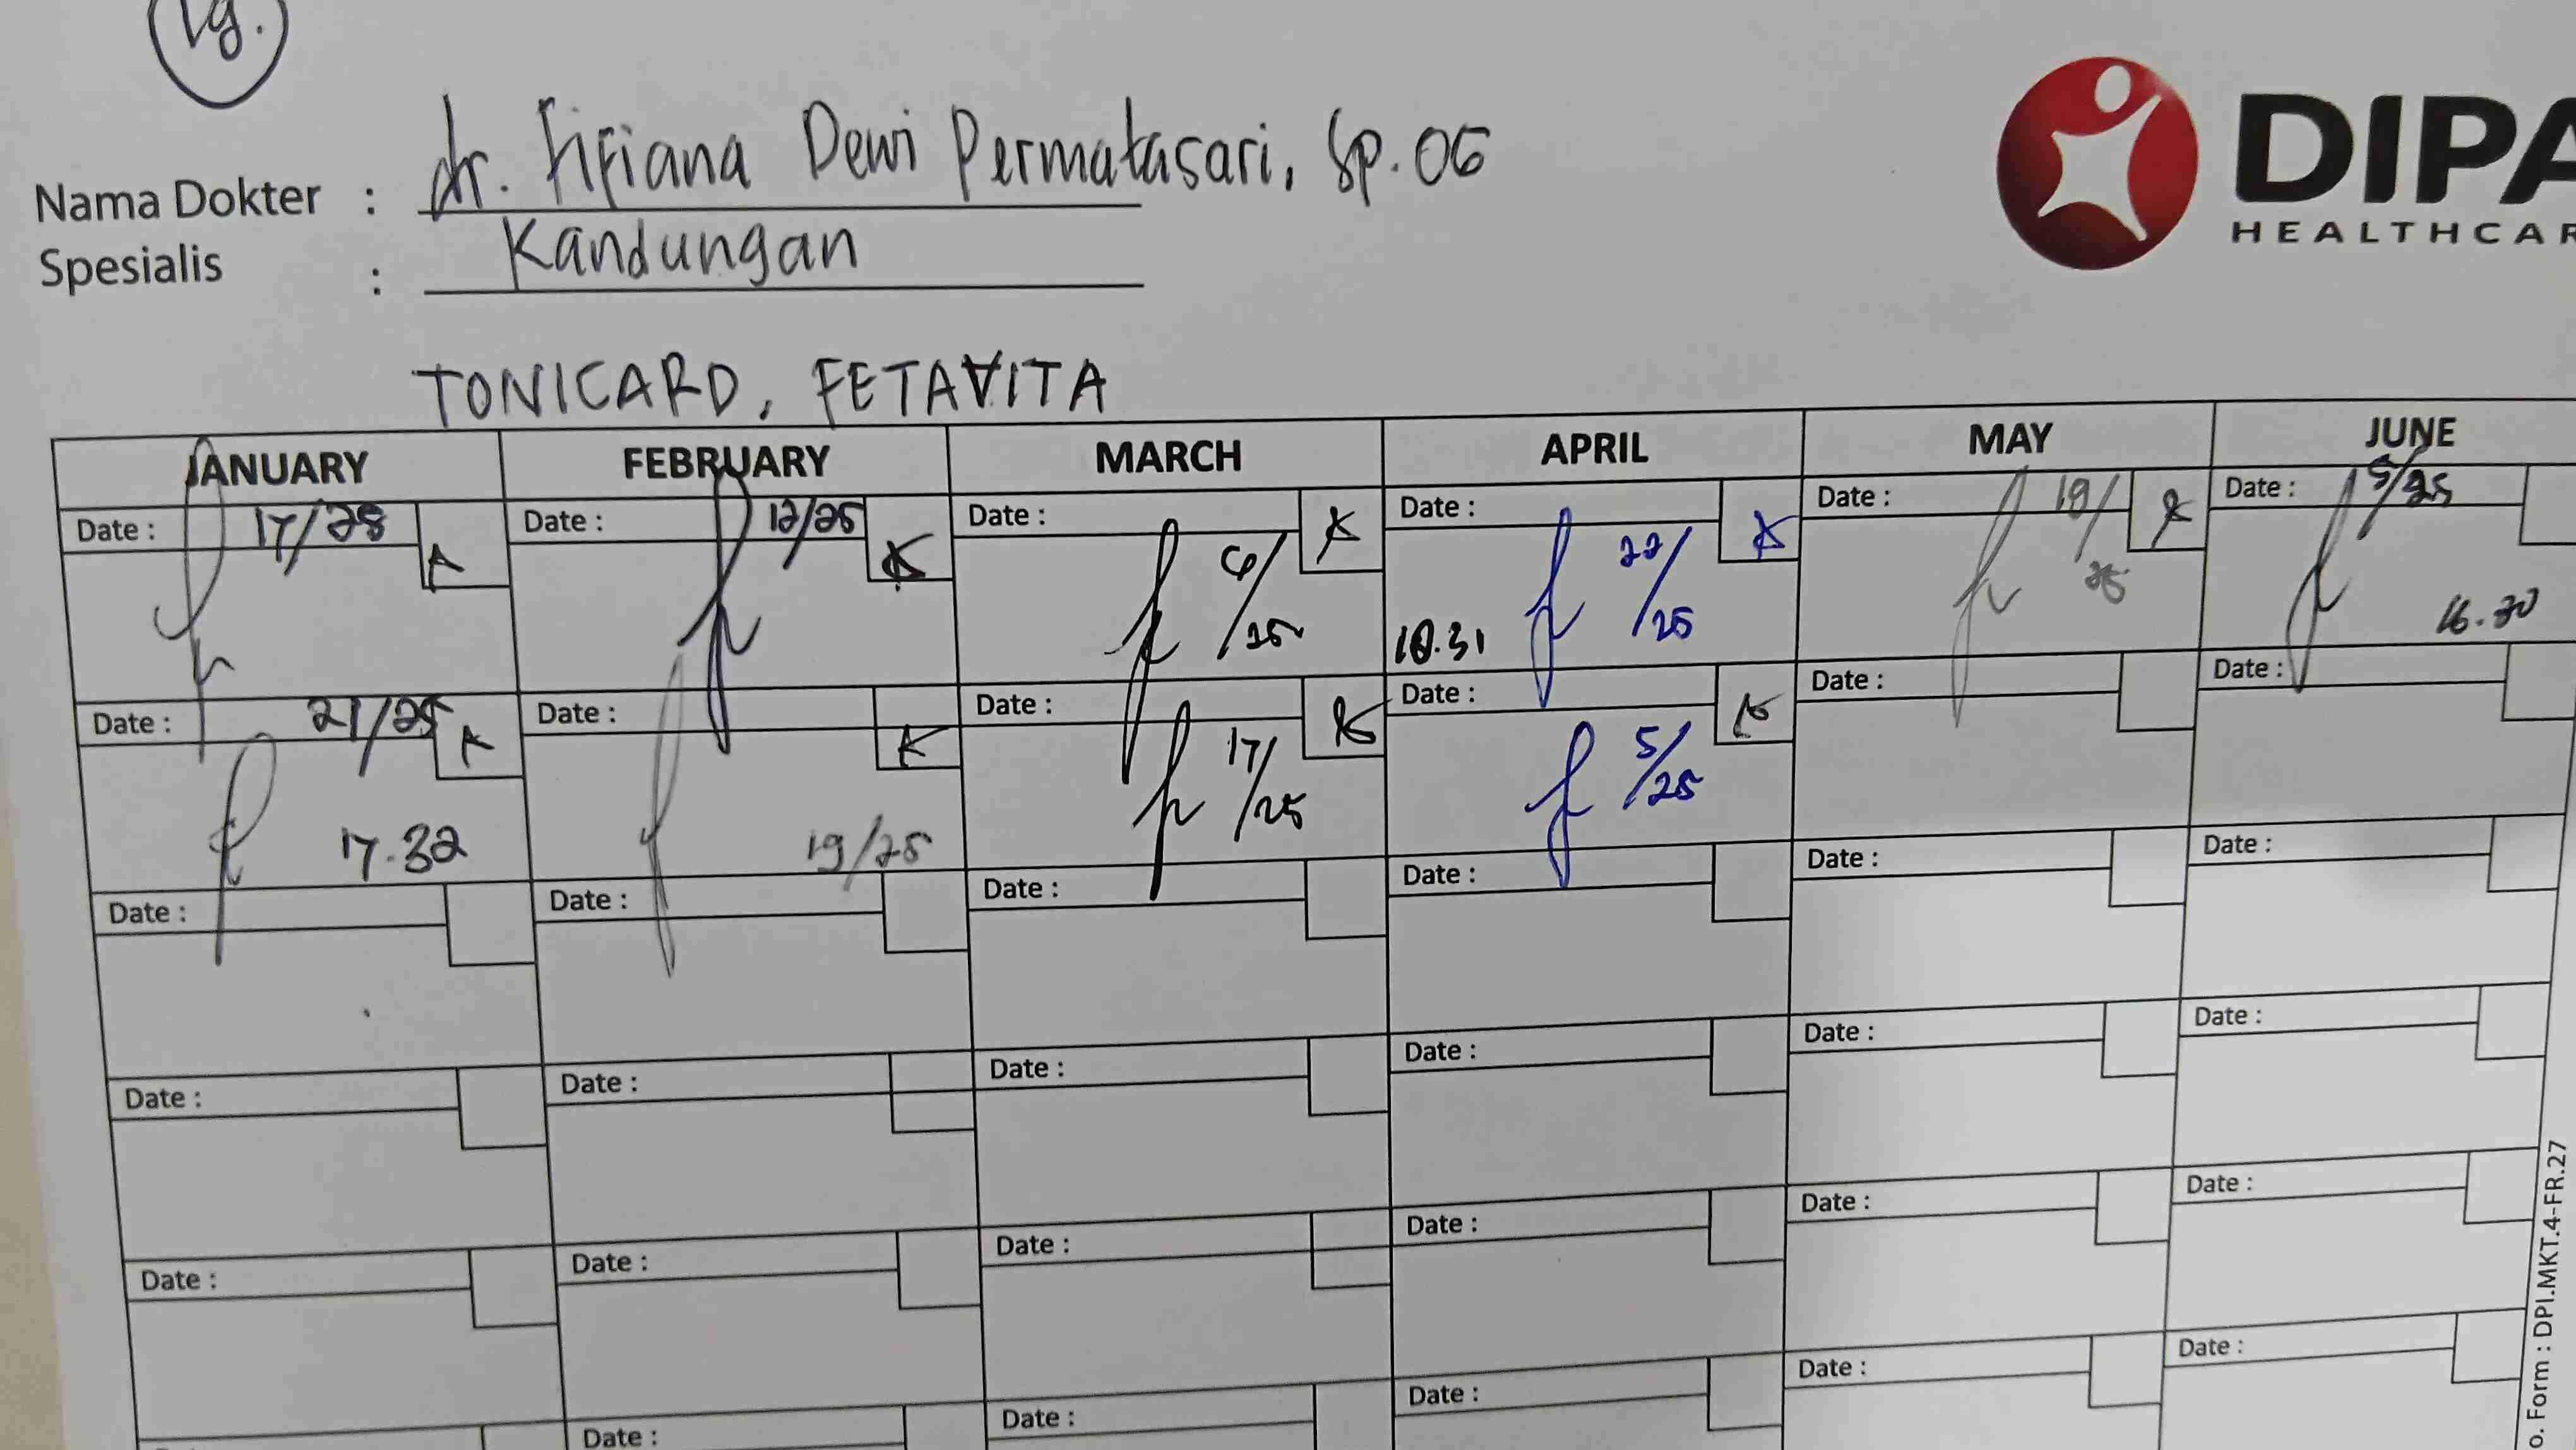 19.
Nama Dokter : dr. Fifiana Dewi Permatasari, Sp.OG
Spesialis : Kandungan
DIPA
HEALTHCAR
TONICARD, FETAVITA
JANUARY FEBRUARY MARCH APRIL MAY JUNE
Date : 17/25 A Date : 12/25 K Date : 6/25 K Date : 22/25 K Date : 19/25 K Date : 5/25
18.31 16.30
Date : 21/25 A Date : K Date : 17/25 K Date : 5/25 K Date : Date :
17.32 19/25
Date : Date : Date : Date : Date : Date :
Date : Date : Date : Date : Date : Date :
Date : Date : Date : Date : Date : Date :
Date : Date : Date : Date : Date :
o. Form : DPI.MKT.4-FR.27